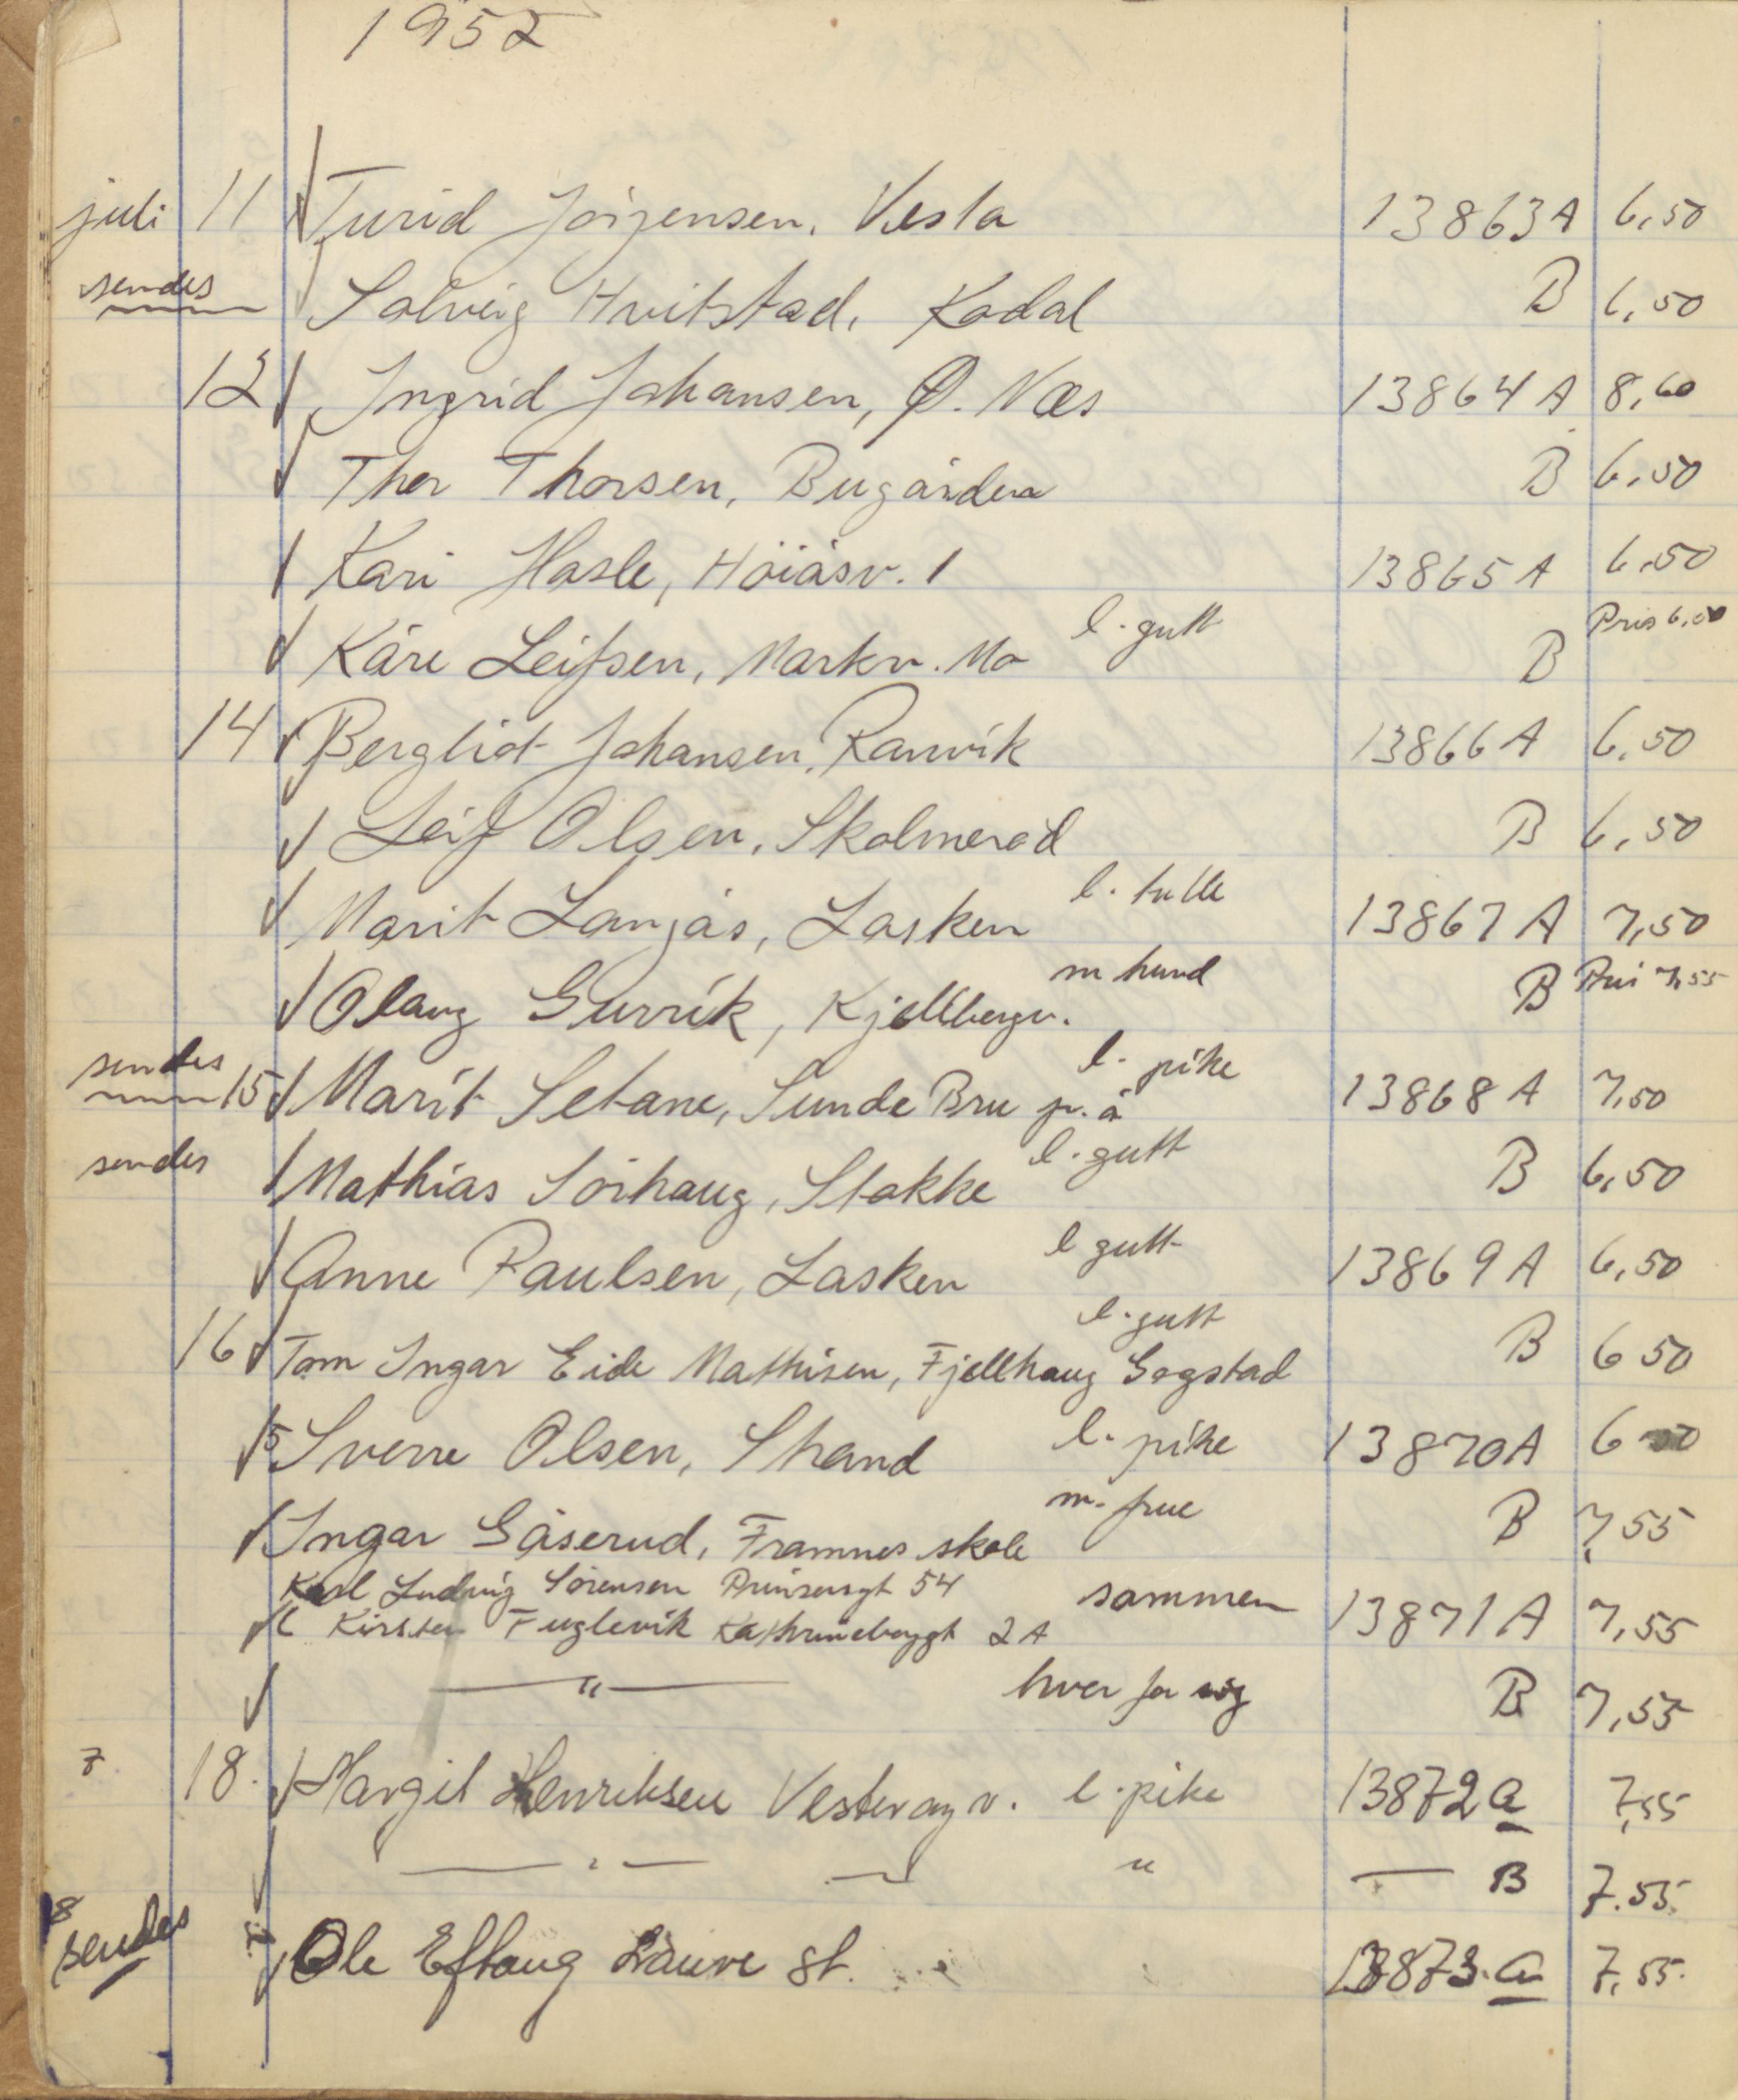 1952
juli 11 Turid Jørgensen, Vesta 13863 A 6,50
sendes Solveig Hvitstad, Kodal B 6,50
12 Ingrid Johansen, Ø. Næs 13864 A 8,60
Thor Thorsen, Bugården B 6,50
Kari Hasle, Höiåsv. 1 13865 A 6,50
Kåre Leifsen, Markv. Mo l. gutt B Pris 6,00
14 Bergliot Johansen, Ranvik 13866 A 6,50
Leif Olsen, Skolmerød B 6,50
Marit Langås, Lasken l. tulle 13867 A 7,50
Olaug Gurvik, Kjellbergv. m hund B Pris 7,55
sendes 15 Marit Setane, Sunde Bru p. å l. pike 13868 A 7,50
sendes Mathias Sörhaug, Stokke l. gutt B 6,50
Anne Paulsen, Lasken l gutt 13869 A 6,50
16 Tom Ingar Eide Mathisen, Fjellhaug Gogstad l. gutt B 6 50
15 Sverre Olsen, Strand l. pike 13870 A 6 50
Ingar Gåserud, Framnes skole m. frue B 7,55
Karl Ludvig Sörensen Prinsensgt 54
Kirsten Fuglevik 2 A sammen 13871 A 7,55
— " — hver for sig B 7,55
7. 18. Margit Henriksen Vesterøyv. l. pike 13872 a 7,55
— " — " — B 7.55
8 sendes Ole Eftang Lauve st. 13873. a 7,55.